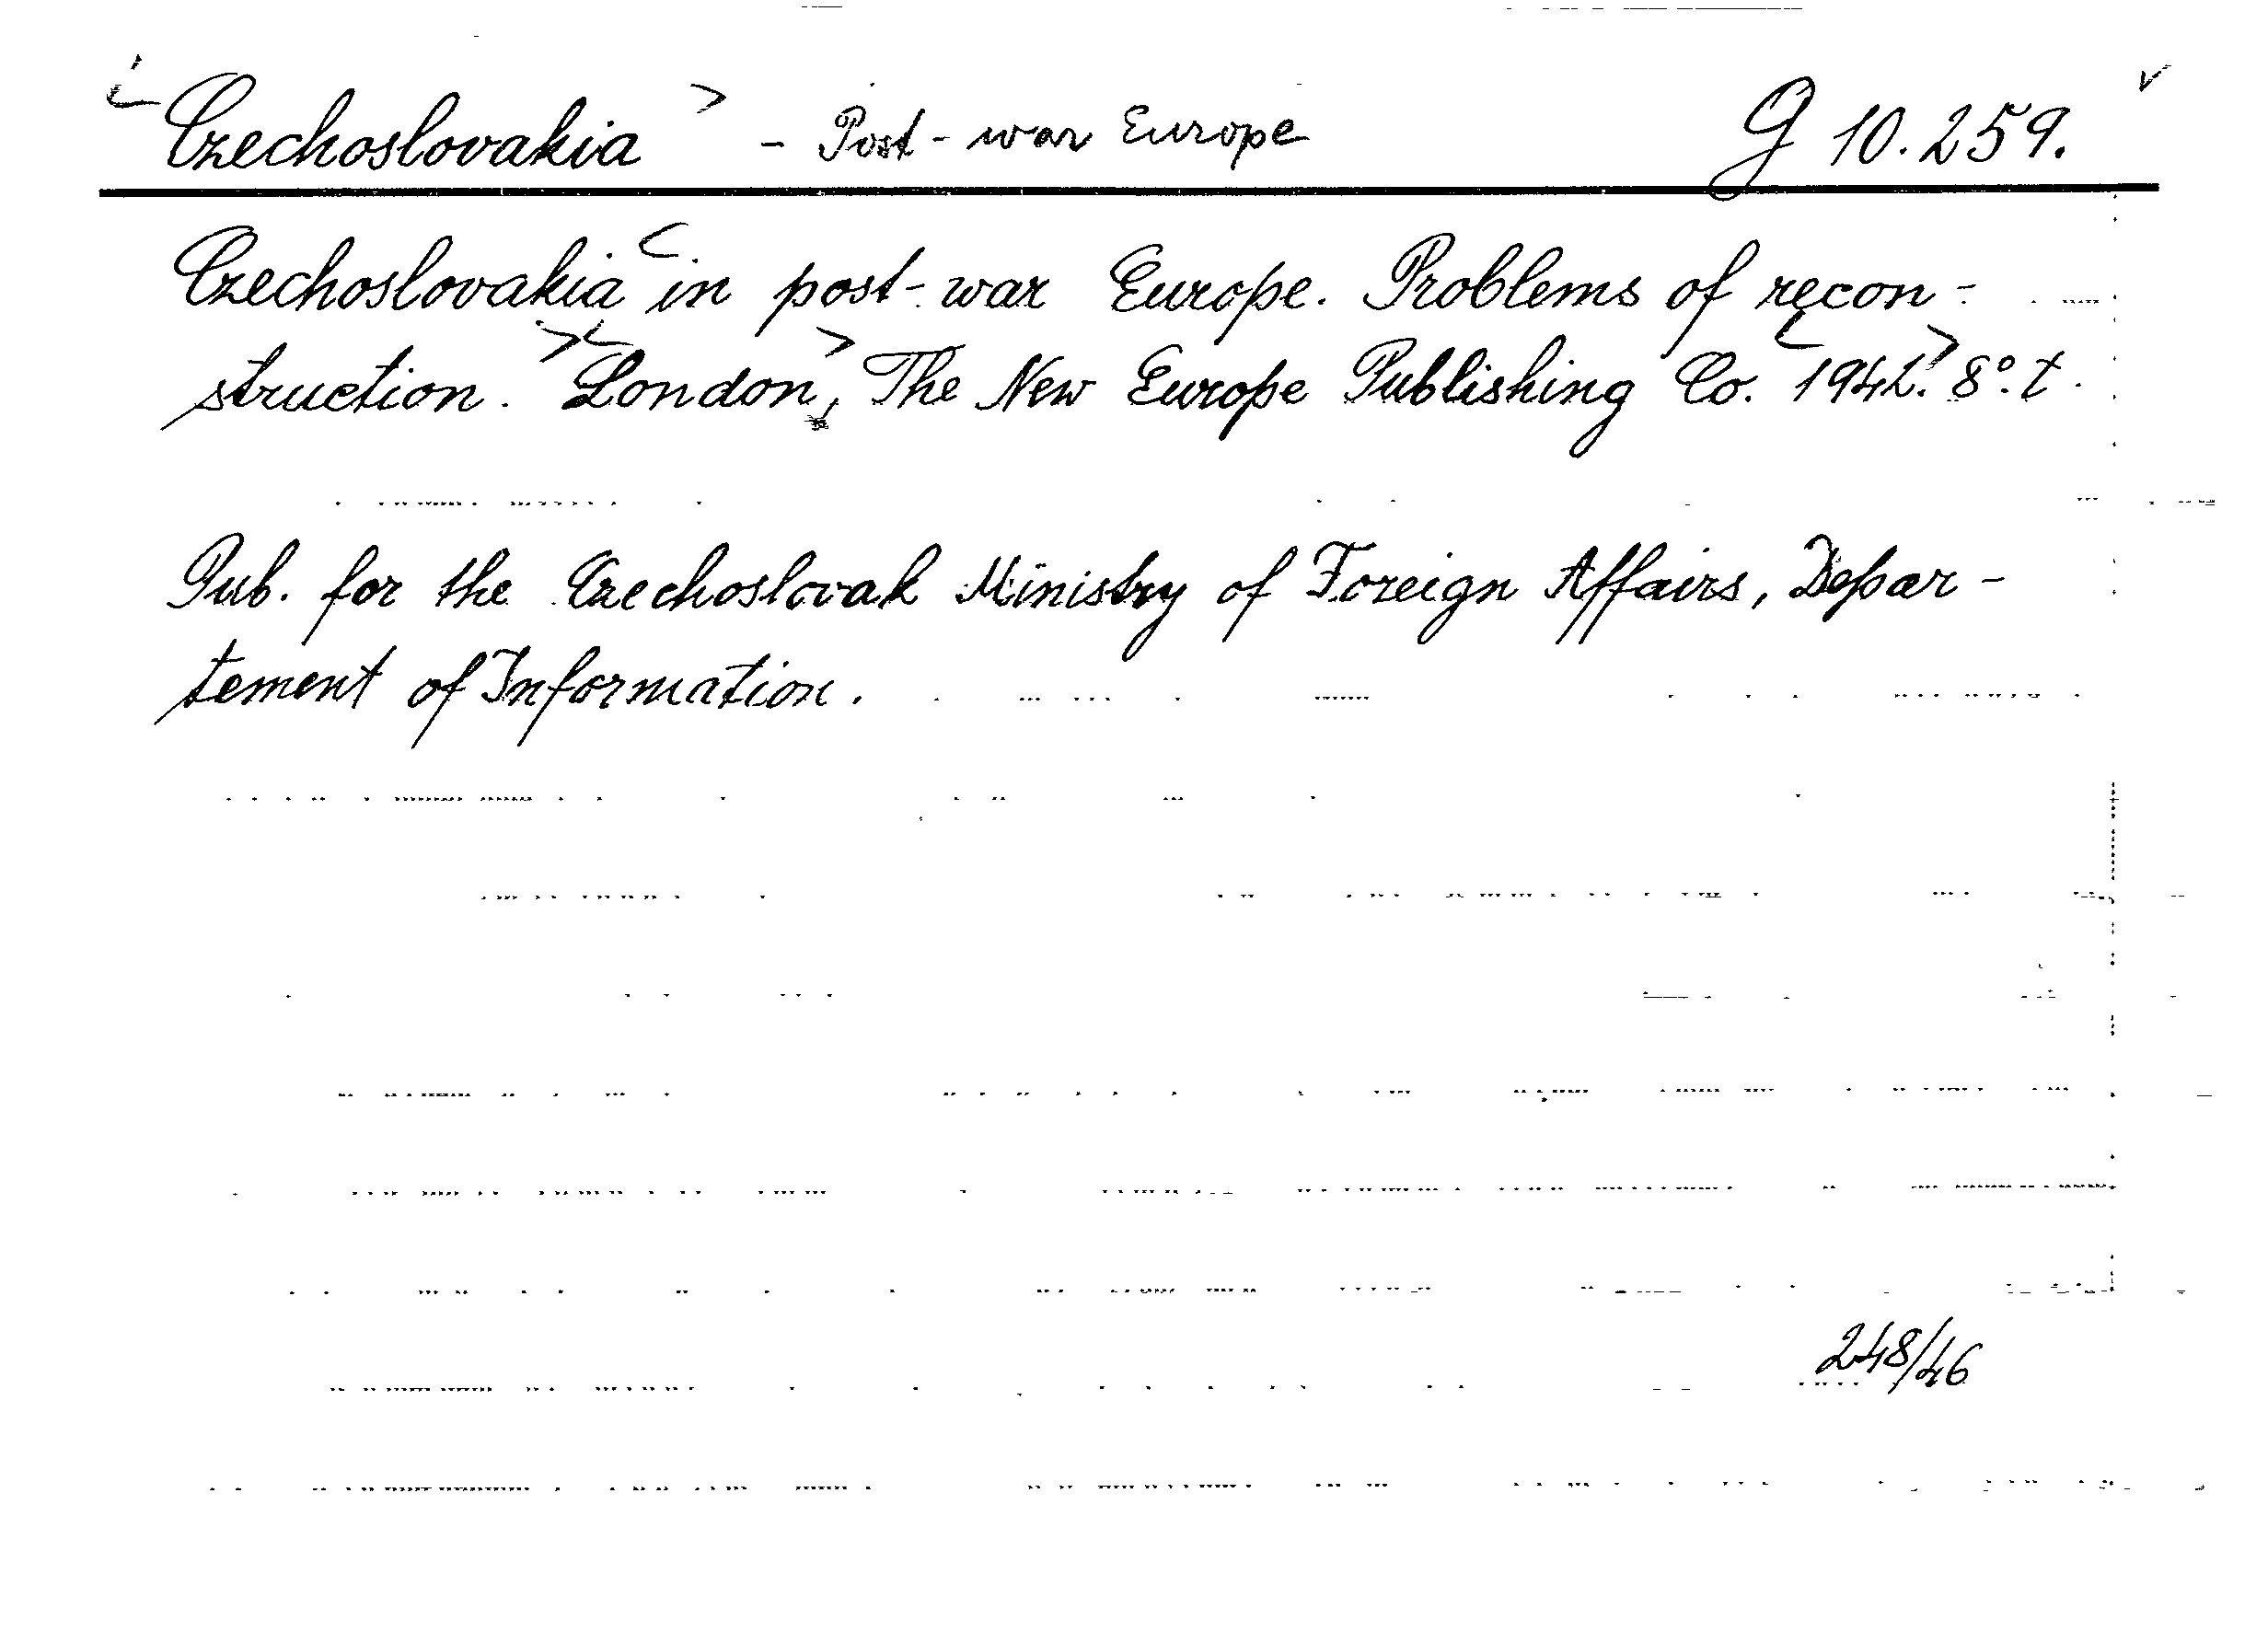 <Czechoslovakia> - Post-war Europe G 10.259.
Czechoslovakia <in post-war Europe. Problems of recon-
struction.> <London>, The New Europe Publishing Co. <1942.> 8°. t.
Pub. for the Czechoslovak Ministry of Foreign Affairs, Depar-
tement of Information.
248/46